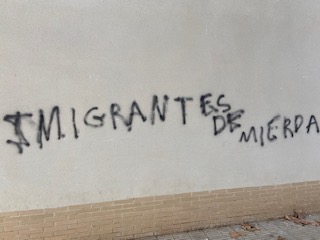 IMIGRANTES
DE MIERDA